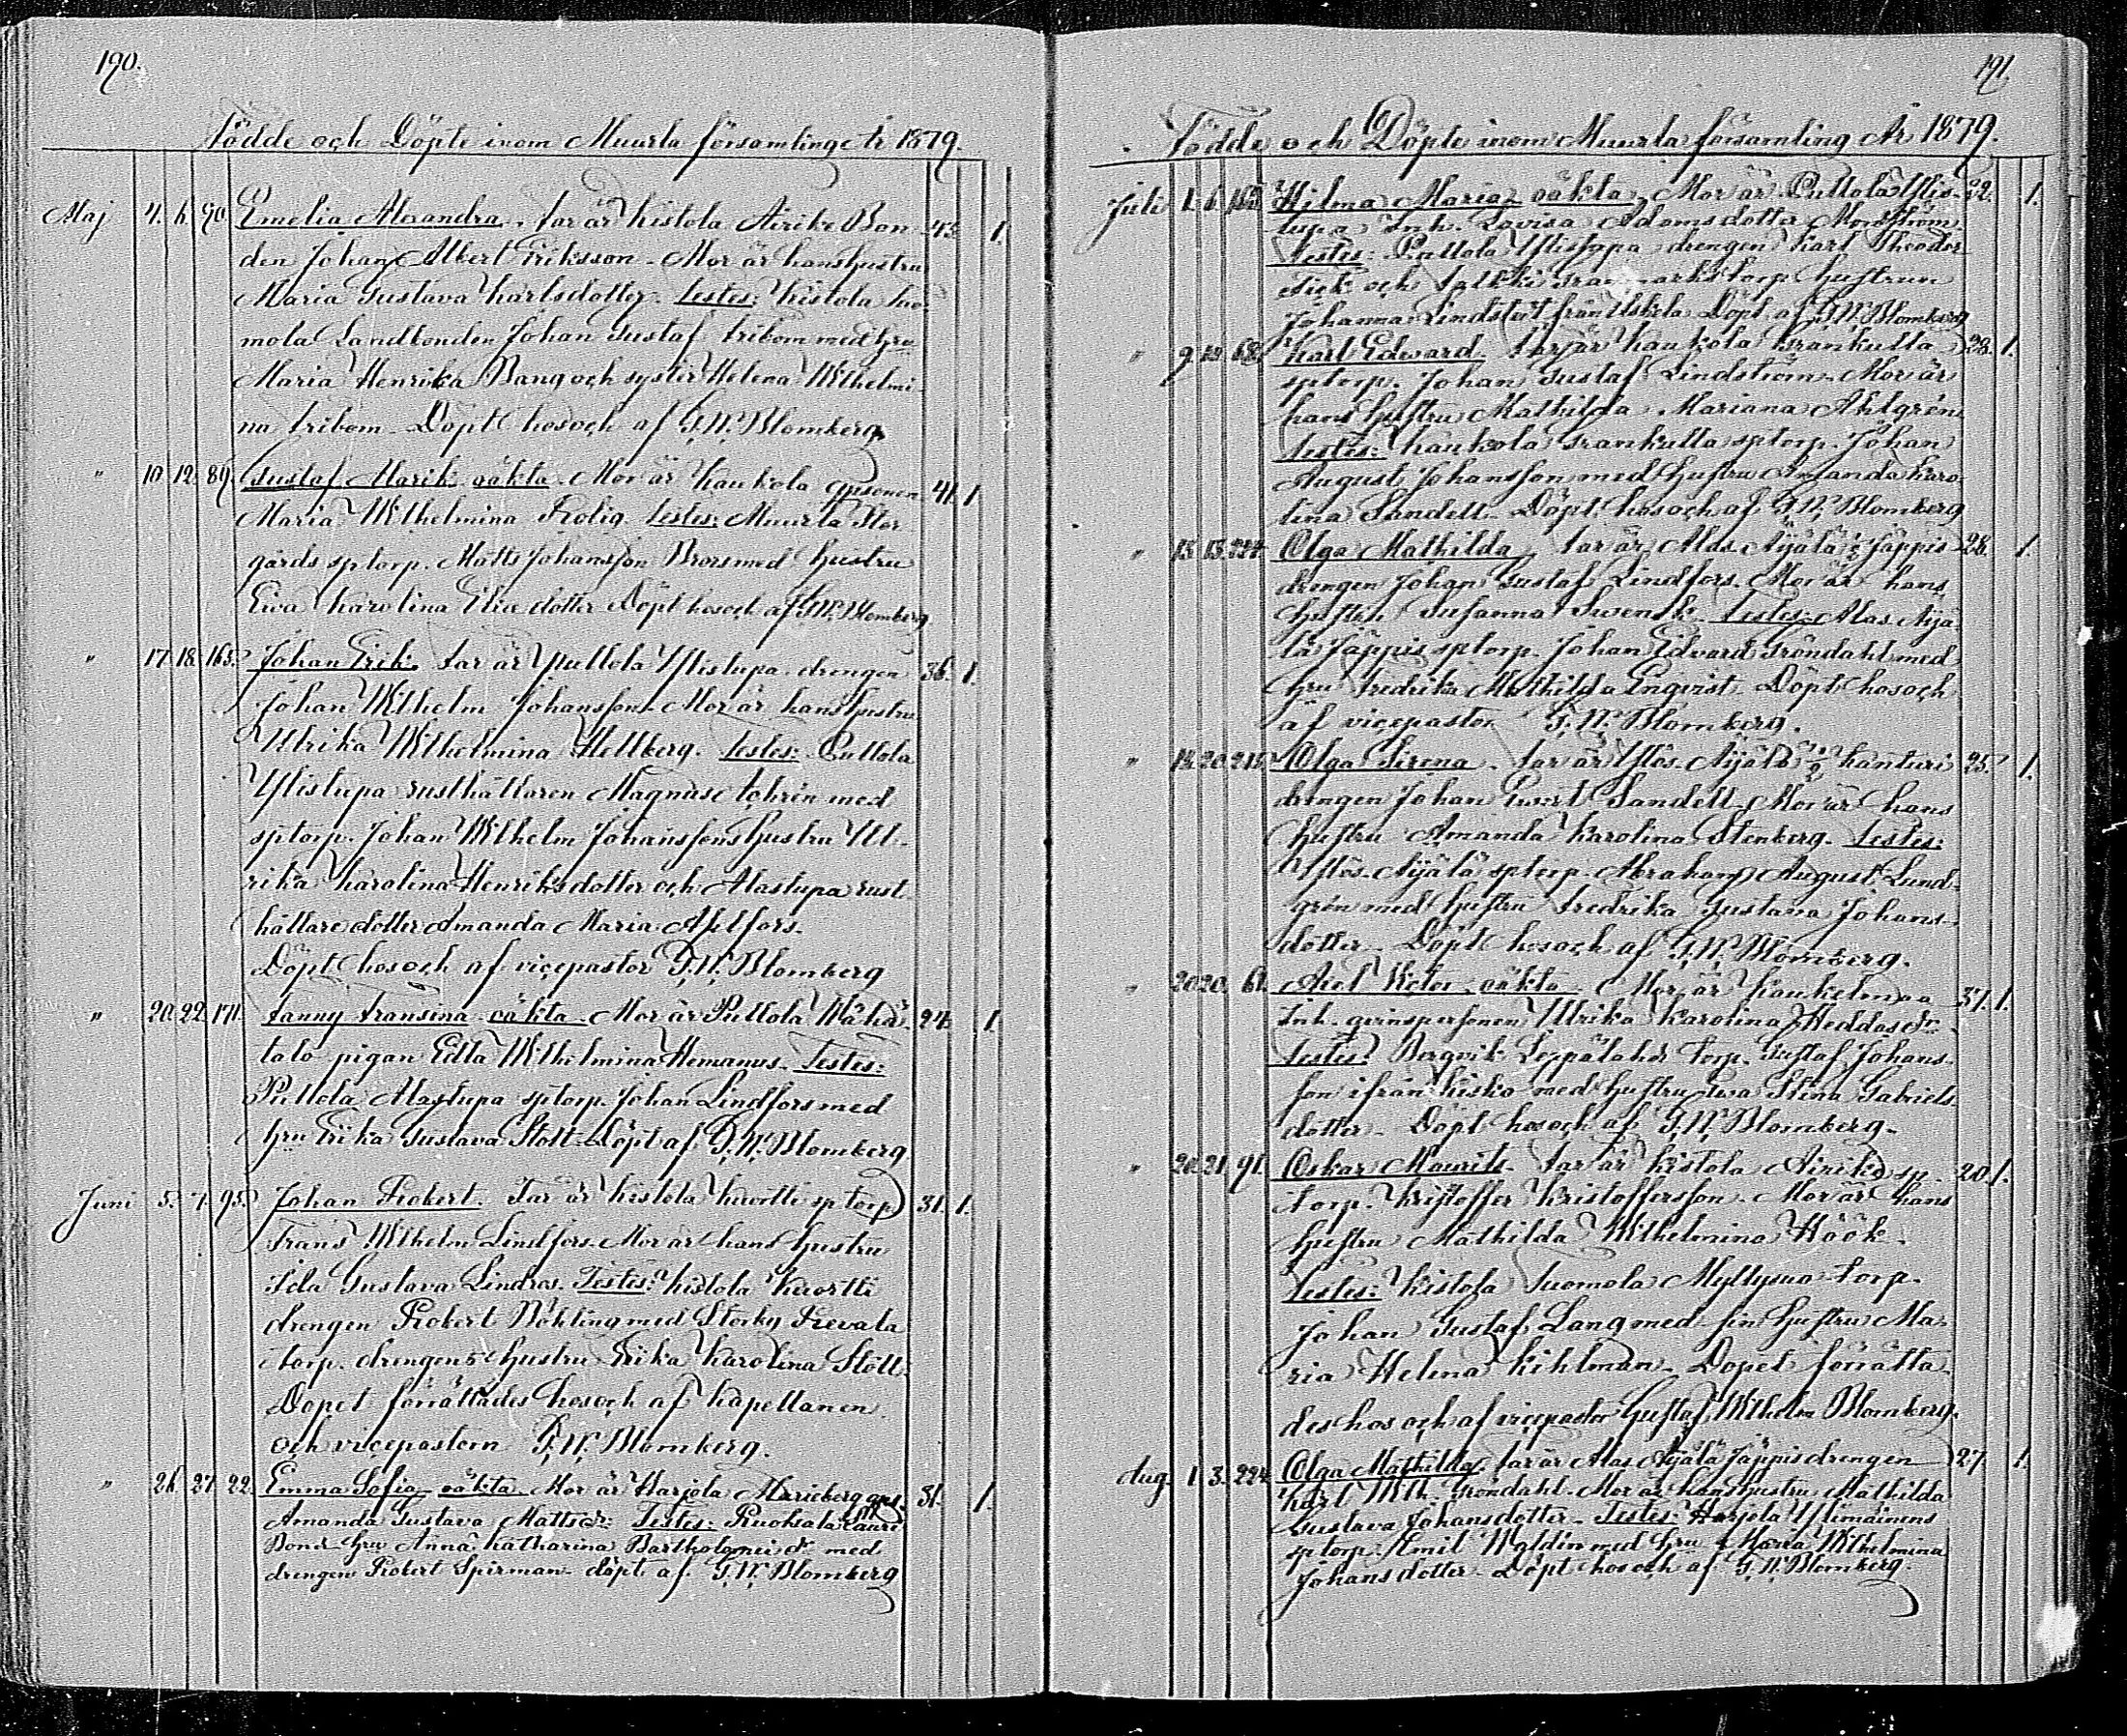 190.
Födde och Döpte inom Muurla församling År 1879.
Maj 4. 6. 90. Emelia Alexandra. Far är Kistola Airiko Bon- 43. 1.
den Johan Albert Eriksson. Mor är hans hustru
Maria Gustava Karlsdotter. Testes: Kistola Suo-
mola Landbonden Johan Gustaf Fribom med hru
Maria Henrika Bang och syster Helena Wilhelmi-
na Fribom. Döpt hos och af G.W. Blomberg
" 10. 12. 89. Gustaf Marik oäkta. Mor är Kaukola qpsonen 41. 1
Maria Wilhelmina Rolig. Testes: Muurla Stor-
gårds sptorp. Matts Johansson Brors med hustru
Ewa Karolina Elie dotter Döpt hos och af G.W. Blomberg
" 17. 18. 165. Johan Erik. Far är Pullola Ylistupa drengen 36. 1.
Johan Wilhelm Johansson. Mor är hans hustru
Ulrika Wilhelmina Hellberg. Testes: Pullola
Ylistupa rusthållaren Magnus Tohrin med
sptorp. Johan Wilhelm Johanssons hustru Ul-
rika Karolina Henriksdotter och Alastupa rust-
hållare dotter Amanda Maria
Döpt hos och af vicepastor G.W. Blomberg
" 20. 22. 171. Fanny Fransina oäkta. Mor är Pullola Wähä- 24. 1.
talo pigan Edla Wilhelmina Hemanus. Testes:
Pullola Alastupa sptorp. Johan Lindfors med
hru Erika Gustava Stolt. Döpt af G.W. Blomberg
Juni 5. 7. 95. Johan Robert. Far är Kistola Kuortti sp torp 31. 1.
Frans Wilhelm Lindfors. Mor är hans hustru
Ida Gustava Lindros. Testes: Kistola Kuortti
drengen Robert Böhling med Storby Revala
torp. drengens hustru Erika Karolina Stolt
Dopet förrättades hos och af Kapellanen
och vicepastorn G.W. Blomberg.
" 26. 27. 22. Emma Sofia oäkta. Mor är Harjola Marieberg qps. 31. 1.
Amanda Gustava Matts dr: Testes: Ruoksala Lauri
Bond hru Anna Katharina Bartholomei dr med
drengen Robert Spirman. döpt af G.W. Blomberg
191.
Födde och Döpte inom Muurla församling År 1879.
Juli 1. 6. Hilma Maria oäkta. Mor är Pullola Ylis- 22. 1.
tupa Inh. Lovisa Adamsdotter Nordström.
Testes: Pullola Ylistupa drengen Karl Theodor
och torp hustrun
Johanna Lindstedt från Uskela Döpt af G.W. Blomberg
" 9. 10. 68. Karl Edward. Far är Kaukola Frankulla 28. 1.
sptorp. Johan Gustaf Lindström. Mor är
hans hustru Mathilda Mariana Ahlgrén
Testes: Kaukola Frankulla sptorp. Johan
August Johansson med hustru Amanda Karo-
lina Sandell. Döpt hos och af G.W. Blomberg
" 13. 15. 224. Olga Mathilda. Far är Alas Äijälä ½ Jäppis 28. 1.
drengen Johan Gustaf Lindfors. Mor är hans
hustru Susanna Swensk. Testes: Alas Äijä-
lä Jäppis sptorp. Johan Edvard Gröndahl med
hru Fredrika Mathilda Enqvist. Döpt hos och
af vicepastor G.W. Blomberg.
" 18. 20. 215. Olga Sirena. Far är Ylös Äijälä ½ Kanturi 25. 1.
drengen Johan Evert Sandell. Mor är hans
hustru Amanda Karolina Stenberg. Testes:
Ylös Äijälä sptorp. Abraham August Lund-
grén med hustru Fredrika Gustava Johans-
dotter. Döpt hos och af G.W. Blomberg.
" 20. 20. 61. Axel Victor oäkta. Mor är Kaukelmaa 37. 1.
Inh. qvinspersonen Ulrika Karolina Heddas dr.
Testes: Bergvik Leppälahti torp. Gustaf Johans-
son ifrån Kisko med hustru Ewa Stina Gabriels
dotter. Döpt hos och af G.W. Blomberg.
" 20. 21. 91. Oskar Maurits. Far är Kistola Airiko sp. 20. 1.
torp. Kristoffer Kristoffersson. Mor är hans
hustru Mathilda Wilhelmina Höök.
Testes: Kistola Suomola Myllysuo torp.
Johan Gustaf Lang med sin hustru Ma-
ria Helena Kihlman. Dopet förrätta-
des hos och af vicepastor Gustaf Wilhelm Blomberg.
Aug. 1. 3. 224. Olga Mathilda. Far är Alas Äijälä Jäppis drengen 27. 1.
Karl Wilh. Gröndahl. Mor är hans hustru Mathilda
Gustava Johansdotter. Testes: Harjola Ylimäinens
sptorp. Emil Waldin med hru Maria Wilhelmina
Johansdotter. Döpt hos och af G.W. Blomberg.